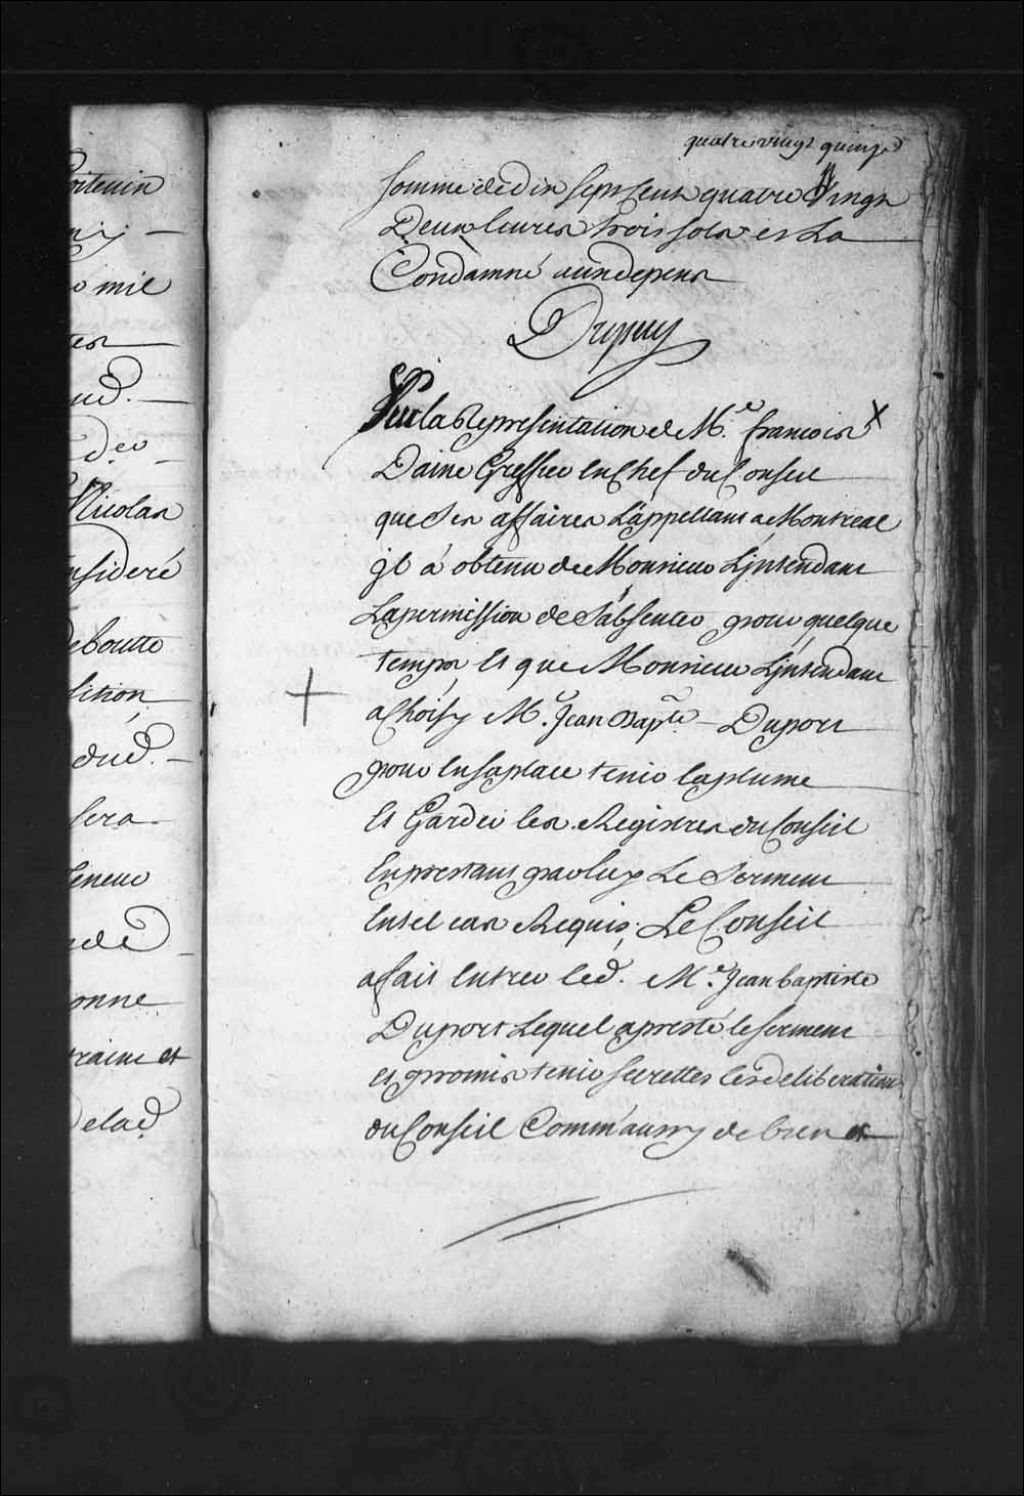 quatre vingt quinze
somme de dix sept cent quatre Vingt
Deux livres trois sols et La
Condamné aux depens
Dupuy
Sur la Representation de Me. francois
Daine Greffier en Chef du Conseil
que Ses affaires L'appellant a Montreal
jl à obtenu de Monsieur L'jntendant
La permission de S'absenter pour quelque
temps, Et que Monsieur L'jntendant
a Choisy Me. Jean Bapte. Duport
pour En sa place tenir la plume
Et Garder les Registres du Conseil
En prestant par luy Le Serment
En tel cas Requis; Le Conseil
a fait Entrer led. Me. Jean baptiste
Duport Lequel a presté le serment
et promis tenir secrettes les deliberations
du Conseil Comm'aussy de bien et
oitevin
o mil
ud.
Nicolas
nsideré
eboutte
sition
dud.
sera
onne
raint et
Delad.